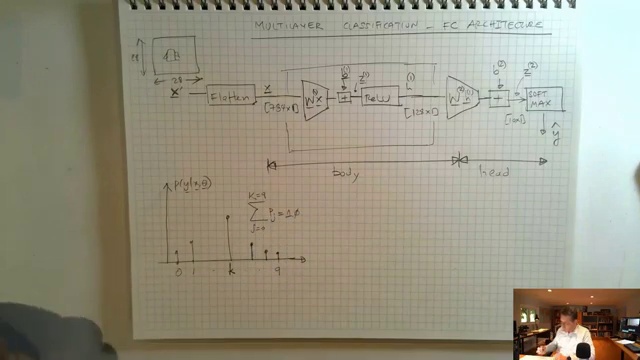 MULTILAYER CLASSIFICATION - FC ARCHITECTURE
28
28
x Flatten x [784x1] W x + b(1) z(1) ReLU h(1) [128x1] W h + b(2) z(2) [10x1] SOFT MAX
ŷ
body head
p(y|x,θ)
K=9
Σ Pj = 1.0
j=0
0 1 . k 9